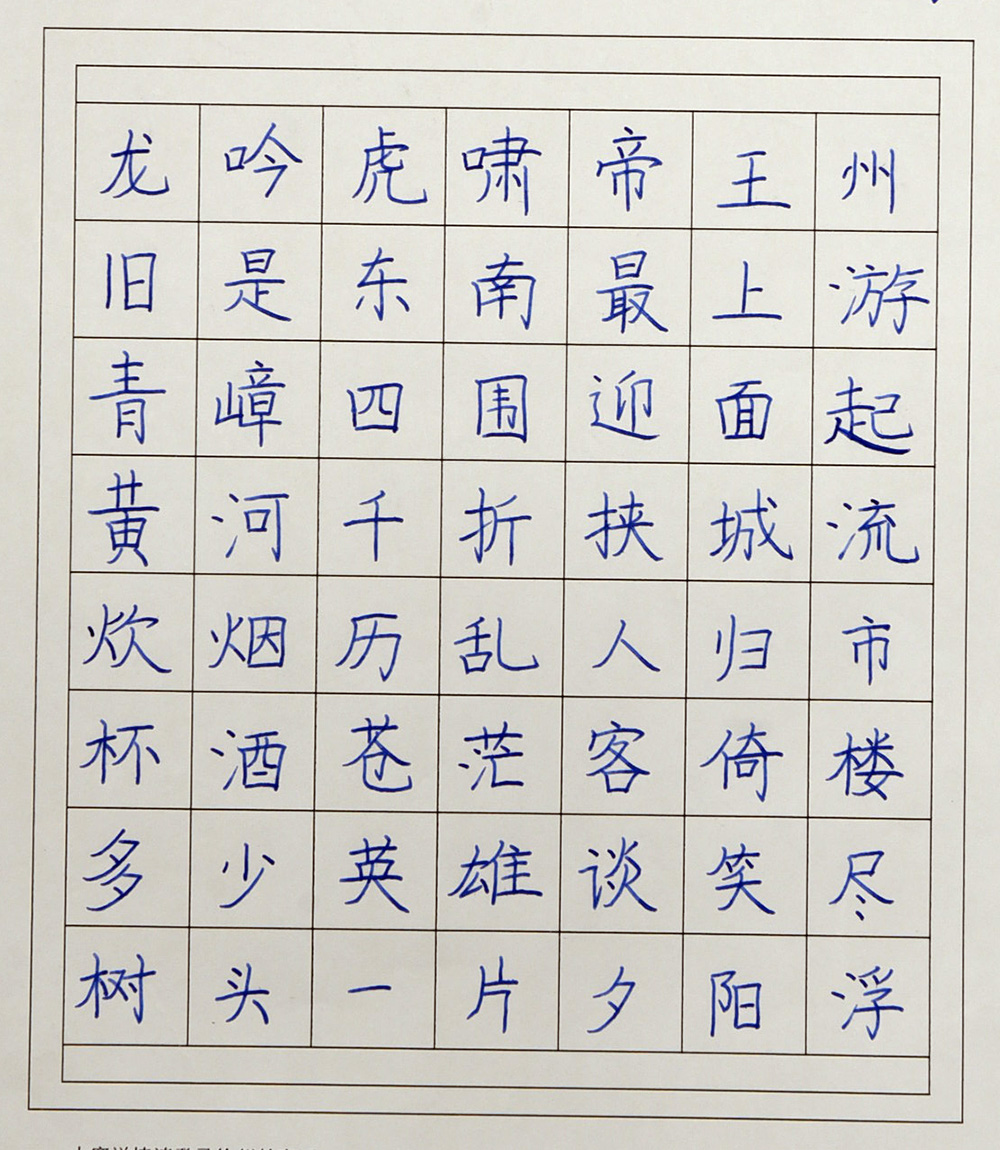 龙吟虎啸帝王州
旧是东南最上游
青嶂四围迎面起
黄河千折挟城流
炊烟历乱人归市
杯酒苍茫客倚楼
多少英雄谈笑尽
树头一片夕阳浮